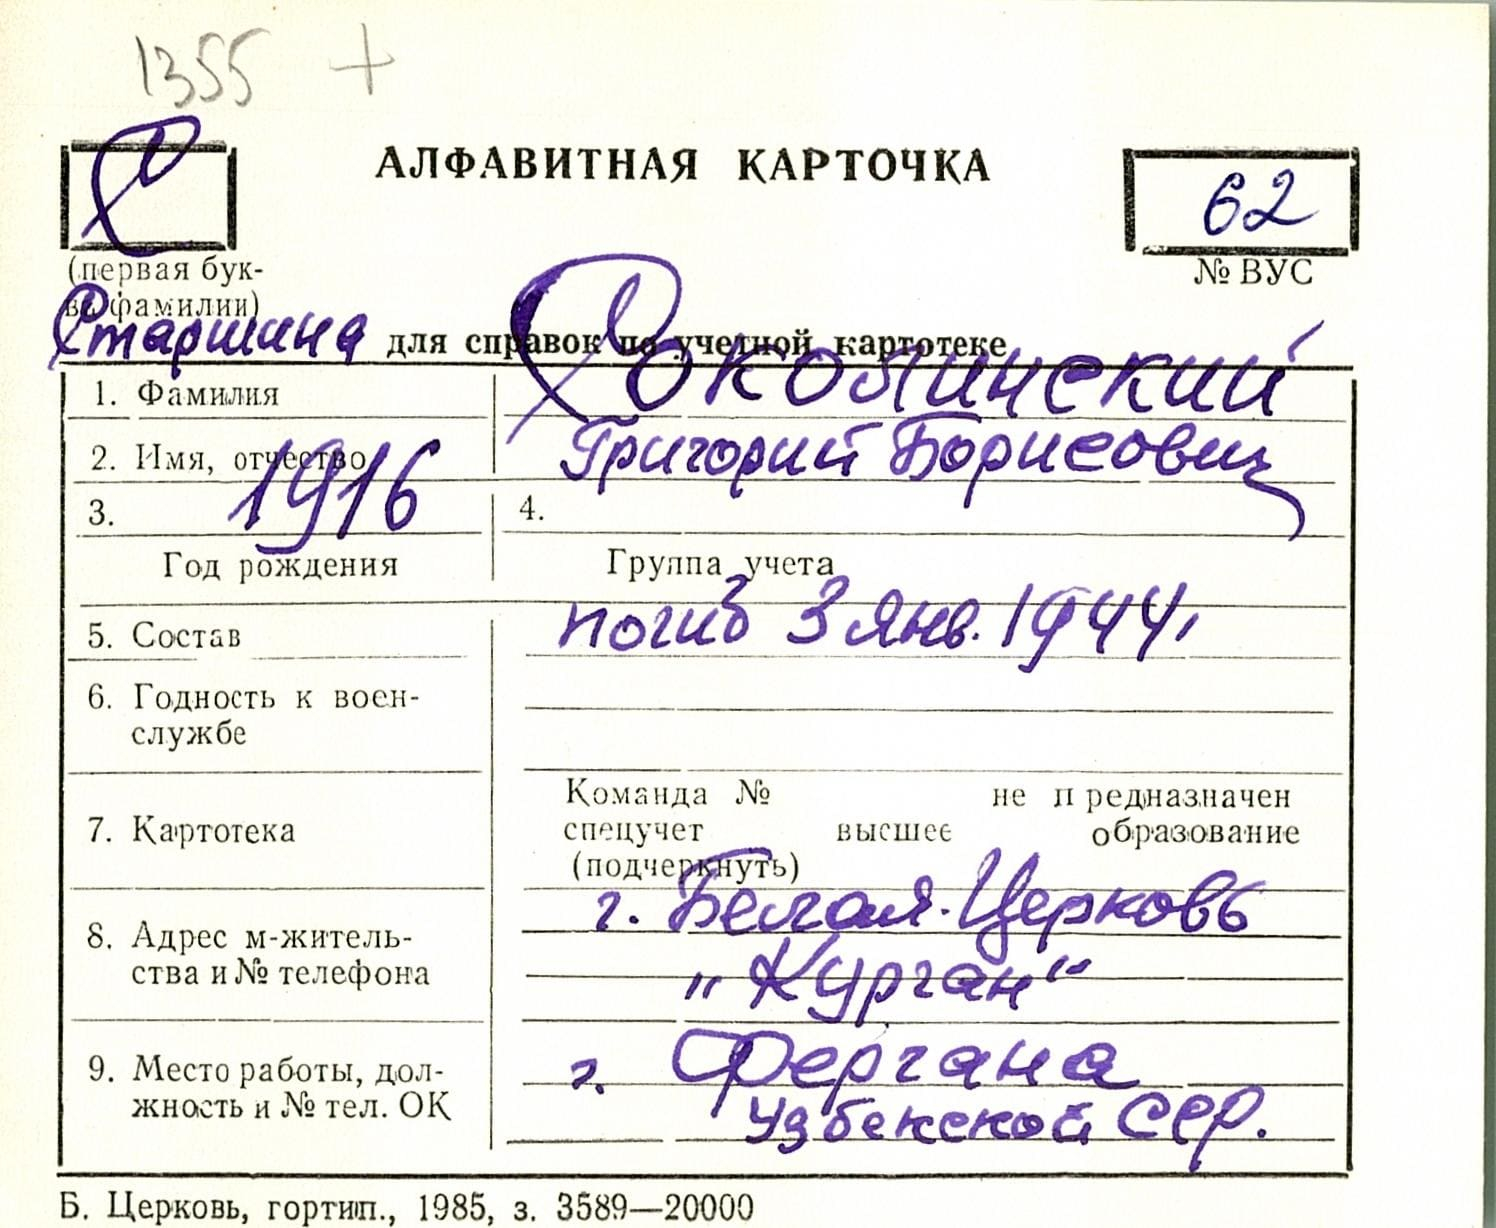 1355 +
С
АЛФАВИТНАЯ КАРТОЧКА
62
(первая бук-
ва фамилии)
№ ВУС
Старшина для справок по учетной картотеке
1. Фамилия Соколинский
2. Имя, отчество Григорий Борисович
3. 1916 4.
Год рождения Группа учета
5. Состав погиб 3 янв. 1944,
6. Годность к воен-
службе
7. Картотека
Команда № не предназначен
спецучет высшее образование
(подчеркнуть)
8. Адрес м-житель-
ства и № телефона
г. Белая-Церковь
„Курган“
9. Место работы, дол-
жность и № тел. ОК
г. Фергана
Узбекской ССР.
Б. Церковь, гортип., 1985, з. 3589—20000